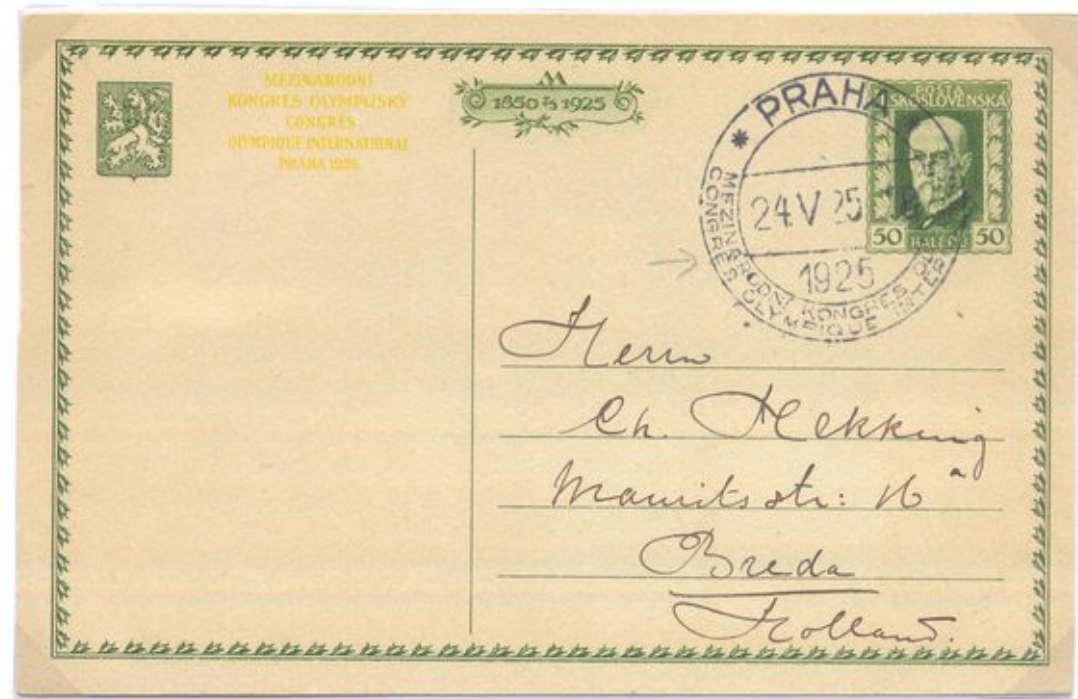 MEZINÁRODNÍ
KONGRES OLYMPIJSKÝ
CONGRES
OLYMPIQUE INTERNATIONAL
PRAHA 1925.
1850 7/3 1925
POŠTA
ČESKOSLOVENSKÁ
50 HALÉŘŮ 50
* PRAHA
24.V 25
1925
MEZINÁRODNÍ KONGRES OL
CONGRÈS OLYMPIQUE INTER
Herrn
Ch. Hekking
Mauritsstr: 16a
Breda
Holland.